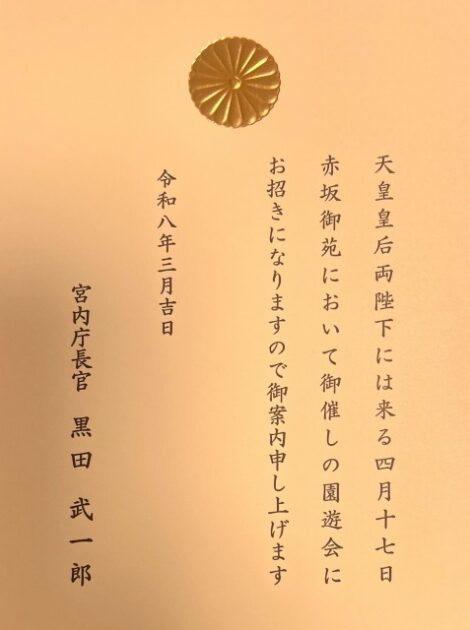 天皇皇后両陛下には来る四月十七日
赤坂御苑において御催しの園遊会に
お招きになりますので御案内申し上げます
令和八年三月吉日
宮内庁長官 黒田 武一郎